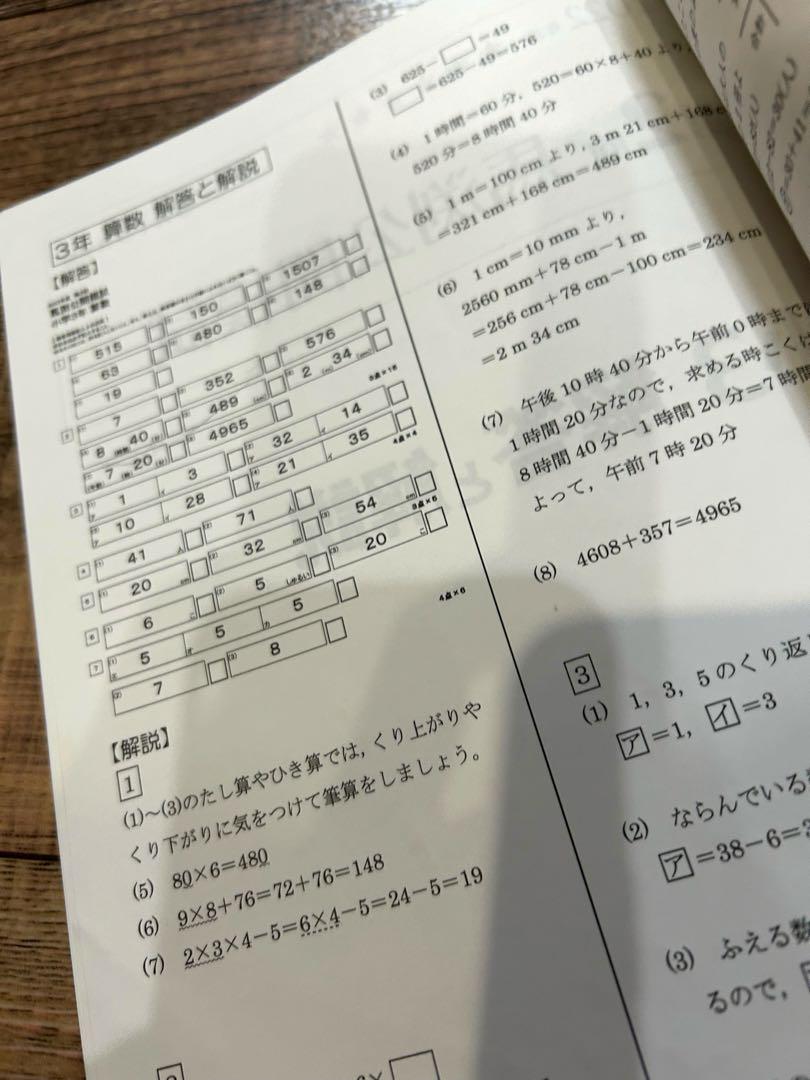 3年 算数 解答と解説
【解答】
1 515 150 1507
63 480 148
19
2 7 352 576
8 (時間) 40 (分) 489 (cm) 2 (m) 34 (cm)
7 (時) 20 (分) 4965
3点×15
3 ア 1 イ 3 ア 32 イ 14
ア 10 イ 28 ア 21 イ 35
4点×4
4 (1) 41 人 (2) 71 人
5 (1) 20 cm (2) 32 cm (3) 54 cm
3点×5
6 (1) 6 こ (2) 5 しゅるい (3) 20 こ
7 (1) 5 5 5
(2) 7 (3) 8
4点×6
【解説】
1
(1)～(3)のたし算やひき算では,くり上がりや
くり下がりに気をつけて筆算をしましょう。
(5) 80×6=480
(6) 9×8+76=72+76=148
(7) 2×3×4-5=6×4-5=24-5=19
(3) 625-□=49
□=625-49=576
(4) 1時間=60分, 520=60×8+40 より,
520分=8時間40分
(5) 1m=100cm より, 3m21cm+168c
=321cm+168cm=489cm
(6) 1cm=10mm より,
2560mm+78cm-1m
=256cm+78cm-100cm=234cm
=2m34cm
(7) 午後10時40分から午前0時まで
1時間20分なので, 求める時こくは
8時間40分-1時間20分=7時間
よって, 午前7時20分
(8) 4608+357=4965
3
(1) 1, 3, 5のくり返
ア=1, イ=3
(2) ならんでいる
ア=38-6=3
(3) ふえる数
るので,